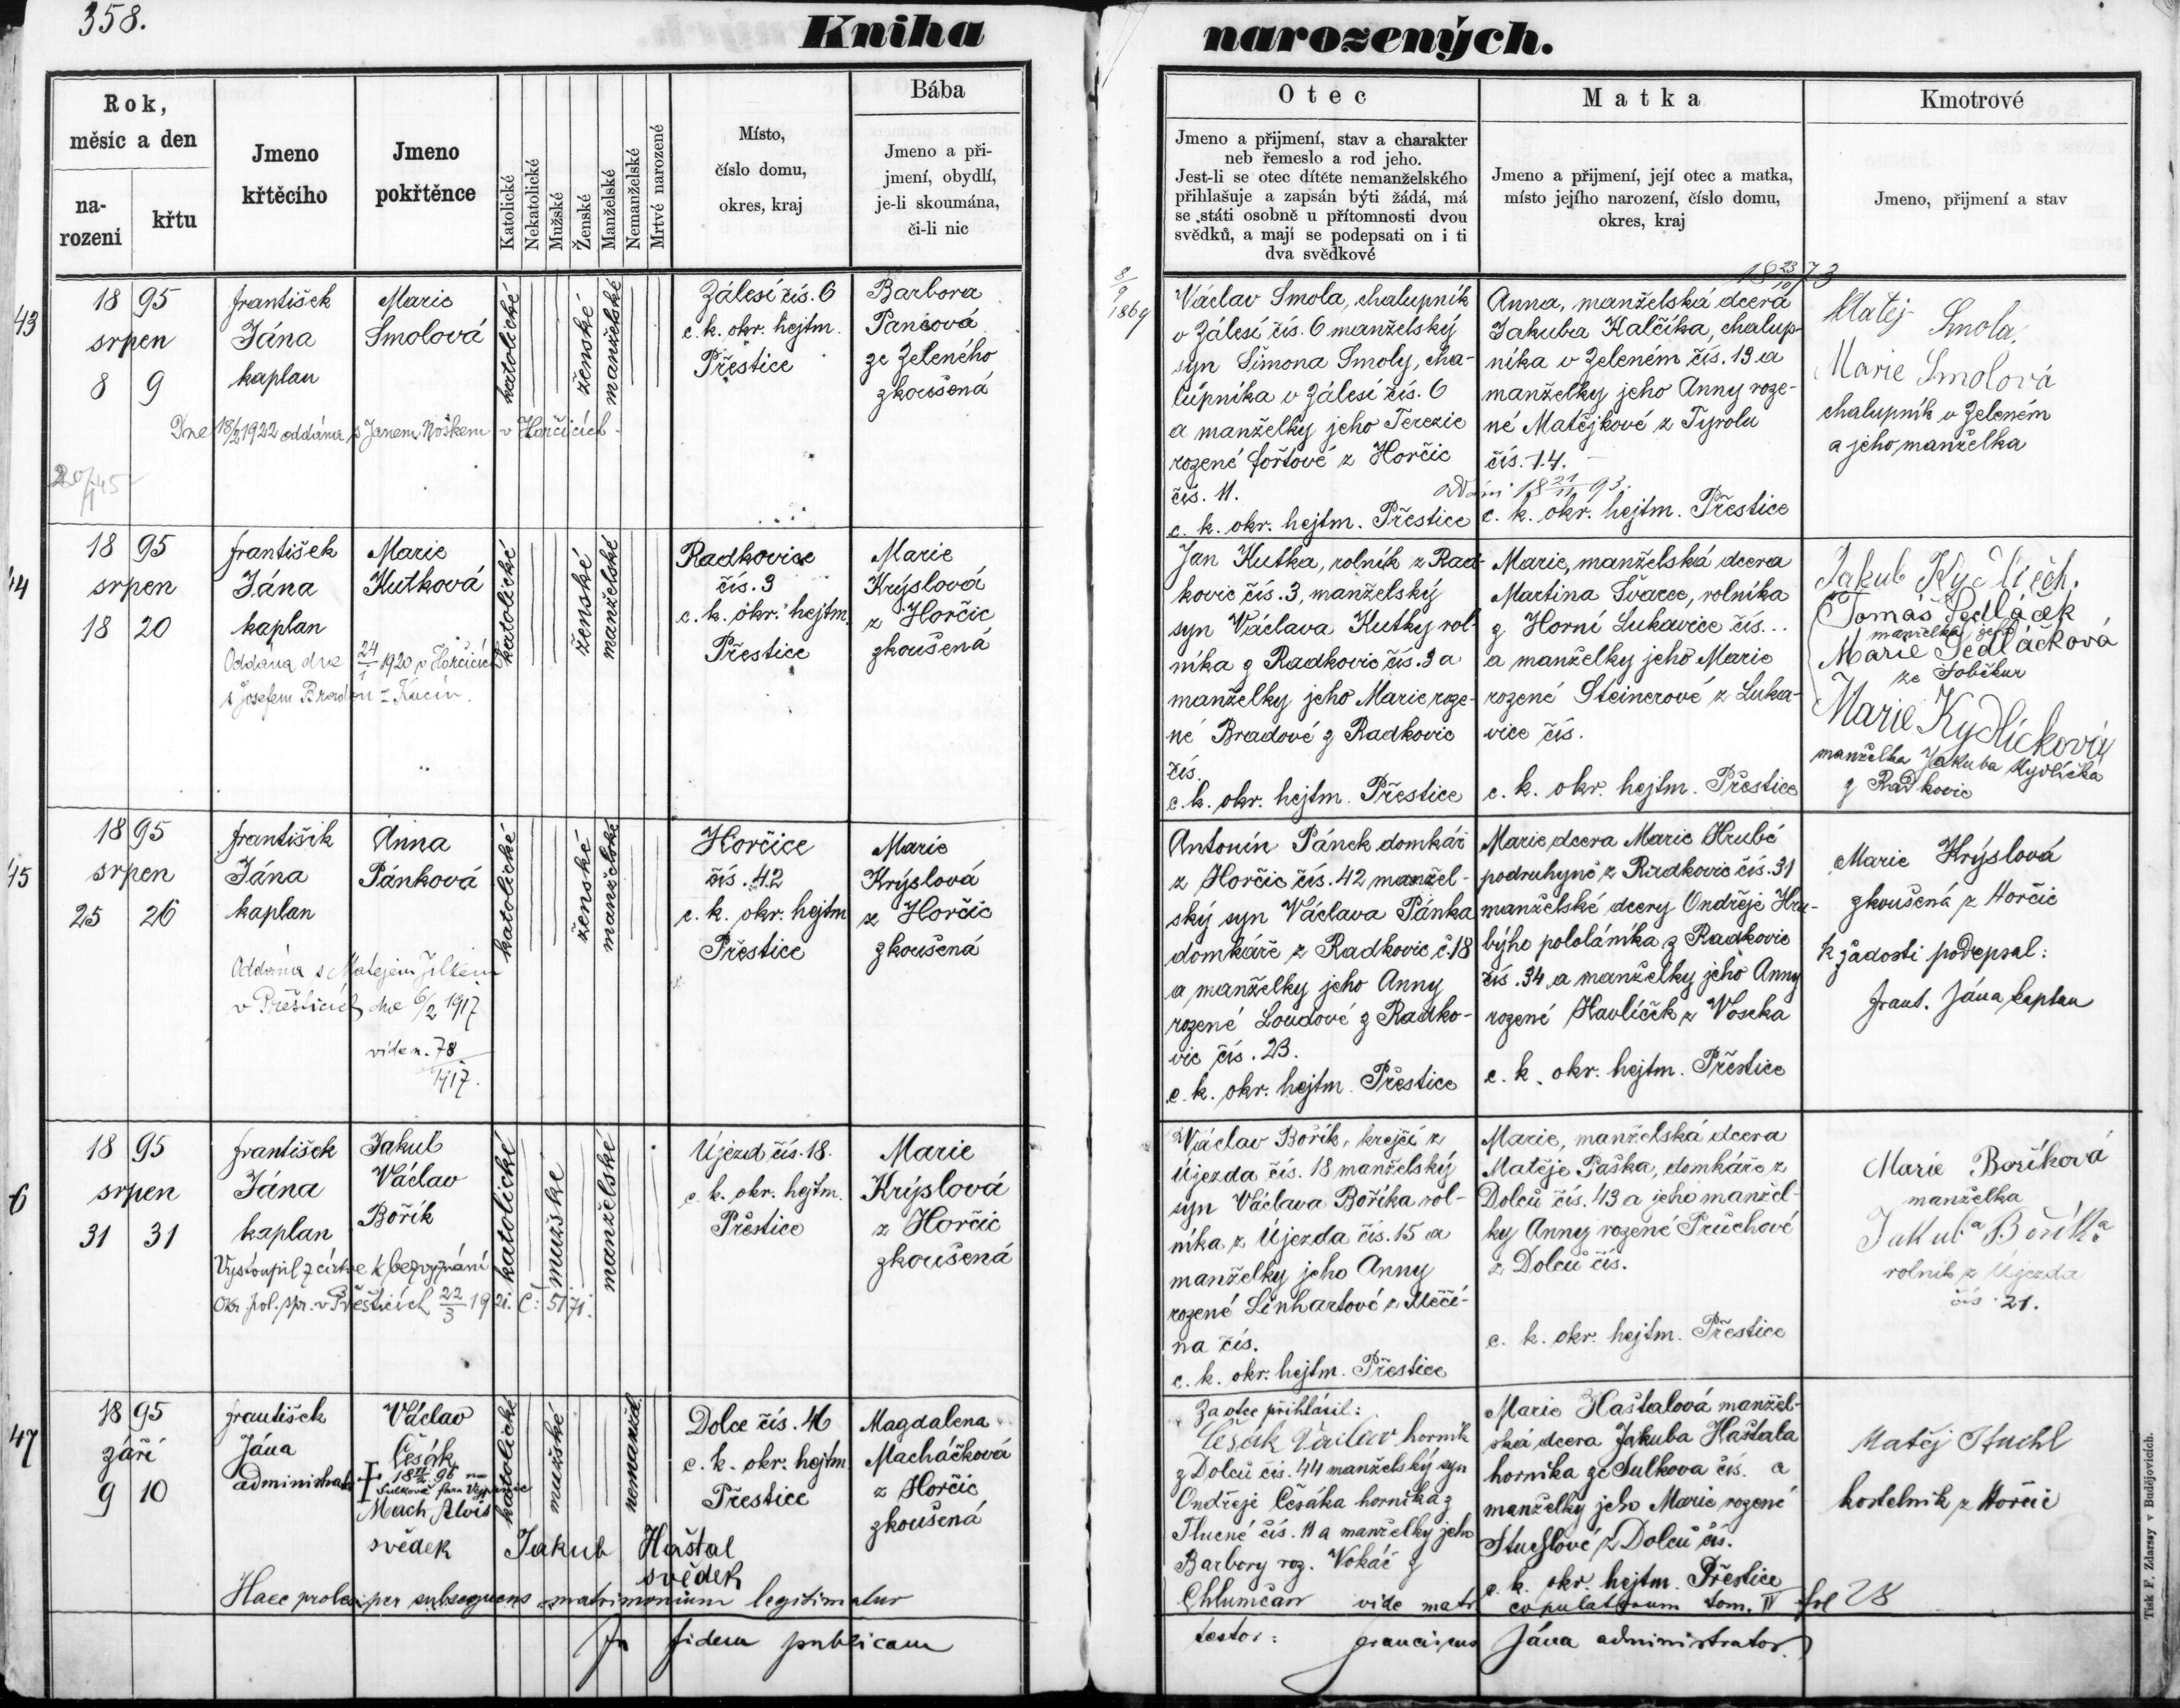 358.
Kniha narozených.
Rok,
měsíc a den
na-
rození
křtu
Jmeno
křtěcího
Jmeno
pokřtěnce
Katolické
Nekatolické
Mužské
Ženské
Manželské
Nemanželské
Mrtvé narozené
Místo,
číslo domu,
okres, kraj
Bába
Jmeno a při-
jmení, obydlí,
je-li skoumána,
či-li nic
Otec
Jmeno a přijmení, stav a charakter
neb řemeslo a rod jeho.
Jest-li se otec dítěte nemanželského
přihlašuje a zapsán býti žádá, má
se státi osobně u přítomnosti dvou
svědků, a mají se podepsati on i ti
dva svědkové
Matka
Jmeno a přijmení, její otec a matka,
místo jejího narození, číslo domu,
okres, kraj
Kmotrové
Jmeno, přijmení a stav
43
18 95
srpen
8 9
František
Jána
kaplan
Marie
Smolová
katolické
ženské
manželské
Zálesí čís. 6
c. k. okr. hejtm.
Přestice
Barbora
Pancová
ze Zeleného
zkoušená
Dne 18/2 1922 oddána s Janem Noskem v Horčicích
8/9 1869
Václav Smola, chalupník
v Zálesí čís. 6 manželský
syn Šimona Smoly, cha-
lupníka v Zálesí čís. 6
a manželky jeho Terezie
rozené Fořtové z Horčic
čís. 11.
c. k. okr. hejtm. Přestice
18 23/10 73
Anna, manželská dcera
Jakuba Kalčíka, chalup-
níka v Zeleném čís. 19 a
manželky jeho Anny roze-
né Matějkové z Tyrolu
čís. 14.
oddáni 18 21/11 93.
c. k. okr. hejtm. Přestice
Matěj Smola,
Marie Smolová
chalupník v Zeleném
a jeho manželka
44
18 95
srpen
18 20
František
Jána
kaplan
Marie
Kutková
katolické
ženské
manželské
Radkovice
čís. 3
c. k. okr. hejtm.
Přestice
Marie
Krýslová
z Horčic
zkoušená
Oddána dne 24/1 1920 v Horčicích
s Josefem Bradou z Kucín.
Jan Kutka, rolník z Rad-
kovic čís. 3, manželský
syn Václava Kutky rol-
níka z Radkovic čís. 3 a
manželky jeho Marie roze-
né Bradové z Radkovic
čís.
c. k. okr. hejtm. Přestice
Marie, manželská dcera
Martina Švarce, rolníka
z Horní Lukavice čís...
a manželky jeho Marie
rozené Steinerové z Luka-
vice čís.
c. k. okr. hejtm. Přestice
Jakub Kydlíčk.
Tomáš Sedláček
manželka jeho
Marie Sedláčková
ze Soběkur
Marie Kydlíčková
manželka Jakuba Kydlíčka
z Radkovic
45
18 95
srpen
25 26
František
Jána
kaplan
Anna
Pánková
katolické
ženské
manželské
Horčice
čís. 42
c. k. okr. hejtm
Přestice
Marie
Krýslová
z Horčic
zkoušená
Oddána s Matějem Jílkem
v Přešticích dne 6/2 1917
vide n. 78
1917.
Antonín Pánek domkář
z Horčic čís. 42 manžel-
ský syn Václava Pánka
domkáře z Radkovic č. 18
a manželky jeho Anny
rozené Loudové z Radko-
vic čís. 23.
c. k. okr. hejtm. Přestice
Marie dcera Marie Hrubé
podruhyně z Radkovic čís. 31
manželské dcery Ondřeje Hru-
býho pololáníka z Radkovic
čís. 34 a manželky jeho Anny
rozené Havlíček z Voseka
c. k. okr. hejtm. Přestice
Marie Krýslová
zkoušená z Horčic
k žádosti podepsal:
Frant. Jána kaplan
6
18 95
srpen
31 31
František
Jána
kaplan
Jakub
Václav
Bořík
katolické
mužské
manželské
Újezd čís. 18.
c. k. okr. hejtm.
Přestice
Marie
Krýslová
z Horčic
zkoušená
Vystoupil z církve k bezvyznání
Okr. pol. spr. v Přešticích 22/3 1921. č: 5171.
Václav Bořík, krejčí z
Újezda čís. 18 manželský
syn Václava Boříka rol-
níka z Újezda čís. 15 a
manželky jeho Anny
rozené Linhartové z Měčí-
na čís.
c. k. okr. hejtm. Přestice
Marie, manželská dcera
Matěje Paška, domkáře z
Dolců čís. 43 a jeho manžel-
ky Anny rozené Průchové
z Dolců čís.
c. k. okr. hejtm. Přestice
Marie Boříková
manželka
Jakuba Boříka
rolník z Újezda
čís. 21.
47
18 95
září
9 10
František
Jána
administrator
Václav
Česák
Mach Alois
svědek
katolické
mužské
nemanžel.
Jakub Haštal
svědek
Dolce čís. 46
c. k. okr. hejtm
Přestice
Magdalena
Macháčková
z Horčic
zkoušená
Za otce přihlásil:
Česák Václav horník
z Dolců čís. 44 manželský syn
Ondřeje Česáka horníka z
Tlucné čís. 11 a manželky jeho
Barbory roz. Vokáč z
Chlumčan
Marie Haštalová manžel-
ská dcera Jakuba Haštala
horníka ze Sulkova čís. a
manželky jeho Marie rozené
Stuchlové z Dolců čís.
c. k. okr. hejtm. Přestice
Matěj Stuchl
kostelník z Horčic
Haec proles per subsequens matrimonium legitimatur vide matr copulatorum tom. IV fol 28
In fidem publicam testor: Franciscus Jána administrator
Tisk F. Zdarsy v Budějovicích.